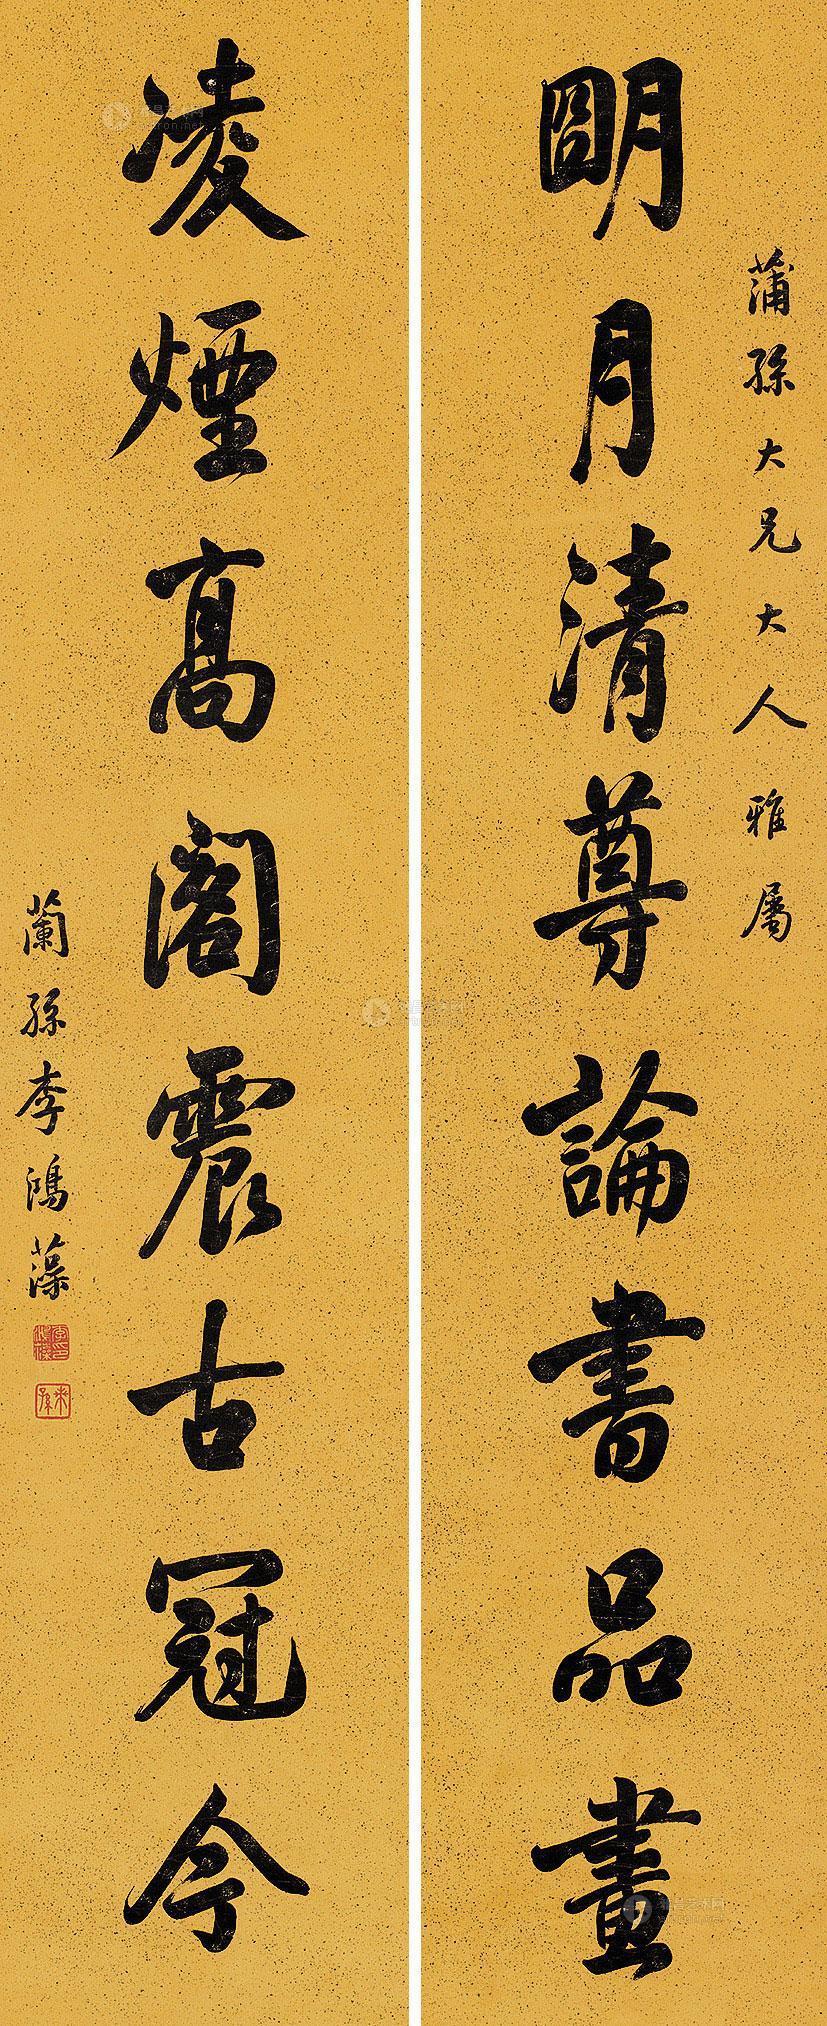 蒲孫大兄大人雅屬
朙月清尊論書品畫
凌煙高閣震古冠今
蘭孫李鴻藻